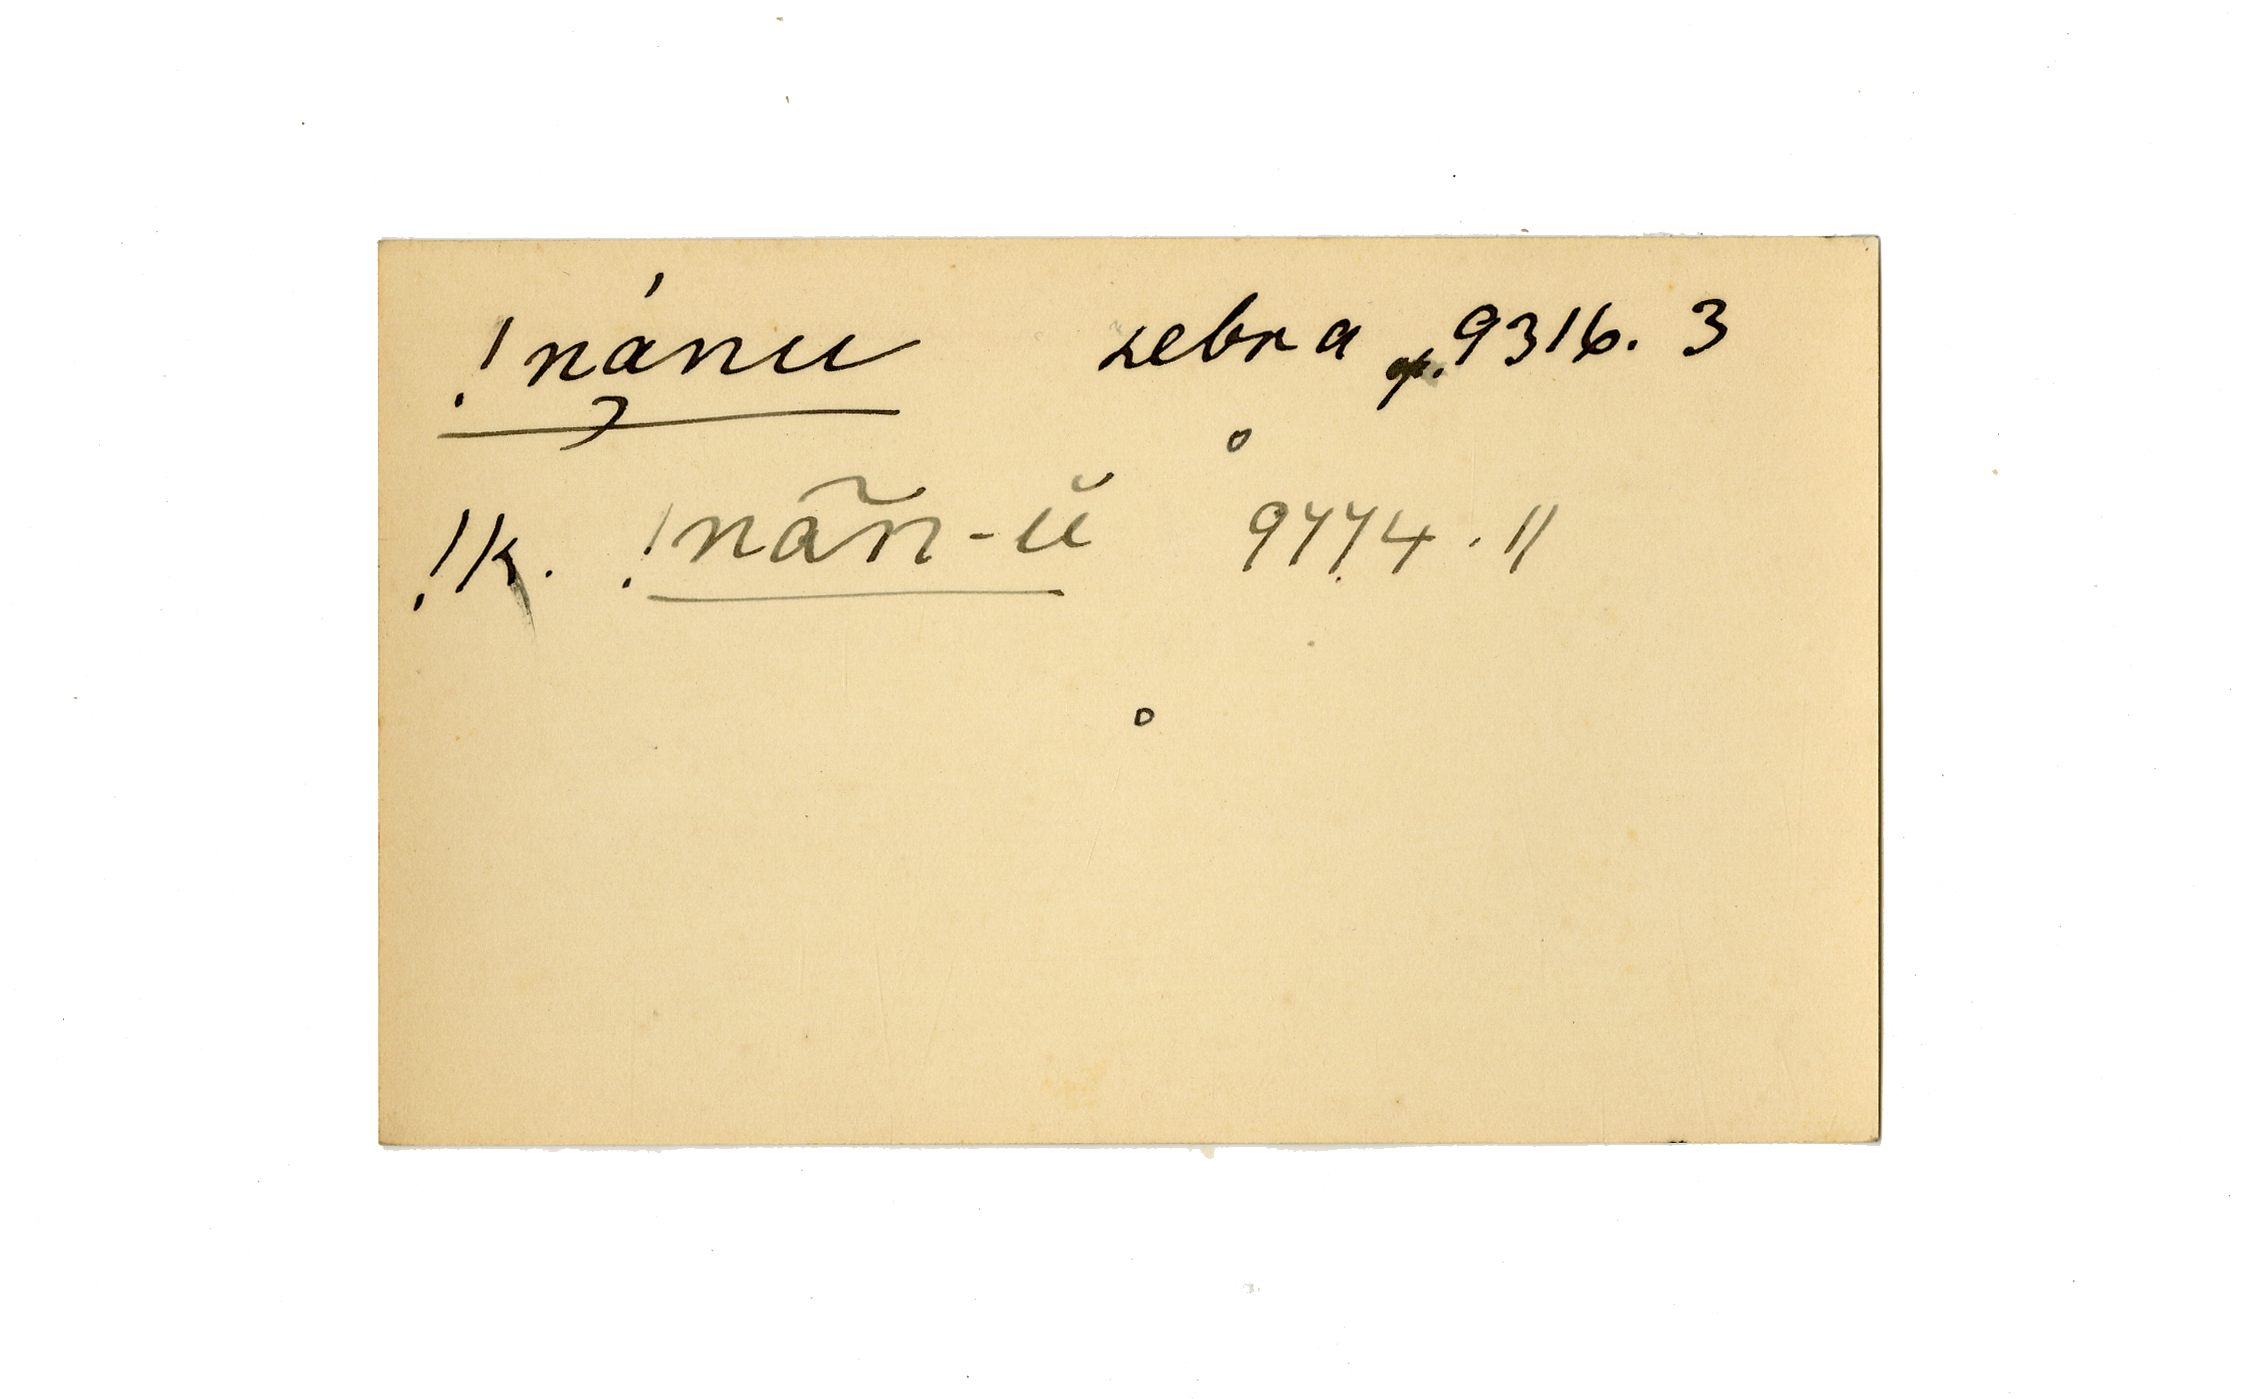 !nánu zebra p. 9316. 3
!k. !nãn-ŭ 9774. 11